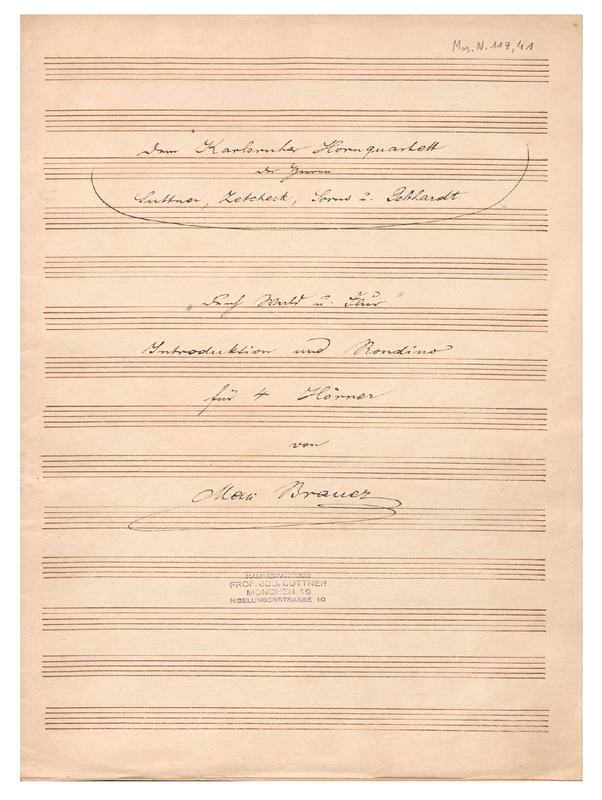 Mus. N. 117,41
Dem Karlsruher Hornquartett
der Herren
Suttner, Zetscheck, Sorns u. Gebhardt
„Durch Wald u. Flur"
Introduktion und Rondino
für 4 Hörner
von
Max Brauer
PROF. JOS. SUTTNER
MÜNCHEN 19
NIBELUNGENSTRASSE 10